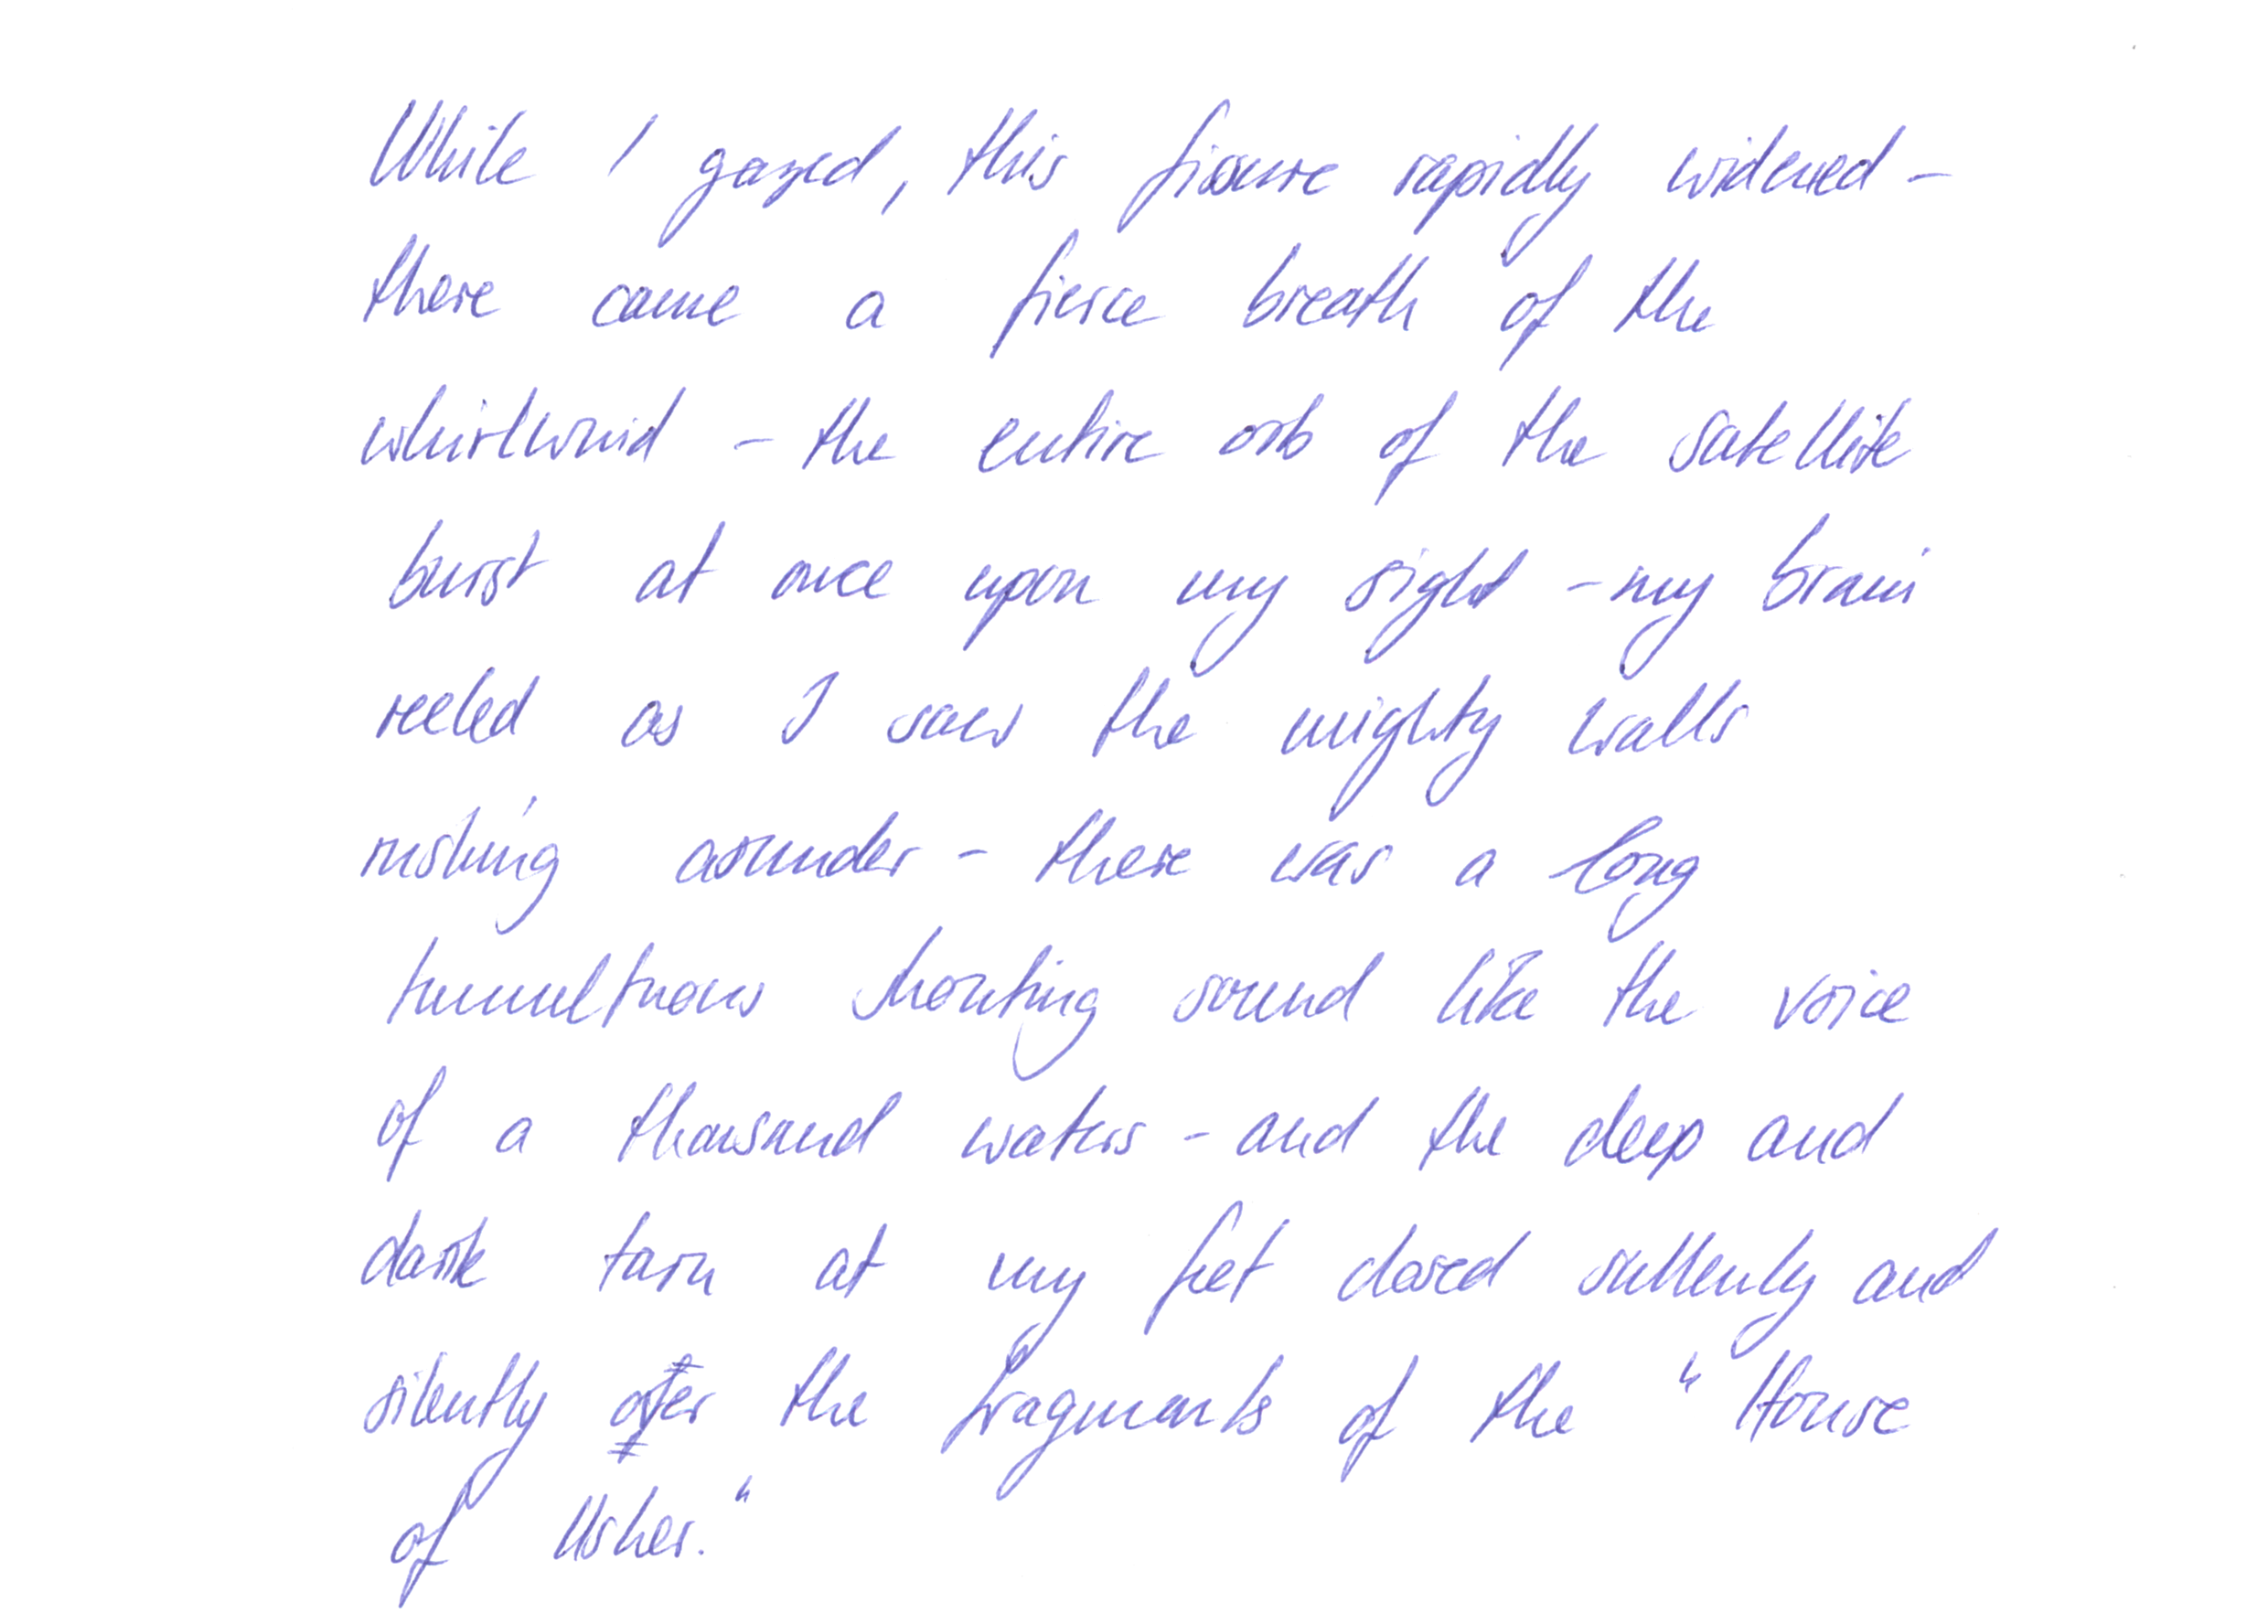 While I gazed, this fissure rapidly widened -
there came a fierce breath of the
whirlwind - the entire orb of the satellite
burst at once upon my sight - my brain
reeled as I saw the mighty walls
rushing asunder - there was a long
tumultuous shouting sound like the voice
of a thousand waters - and the deep and
dark tarn at my feet closed sullenly and
silently over the fragments of the "House
of Usher."